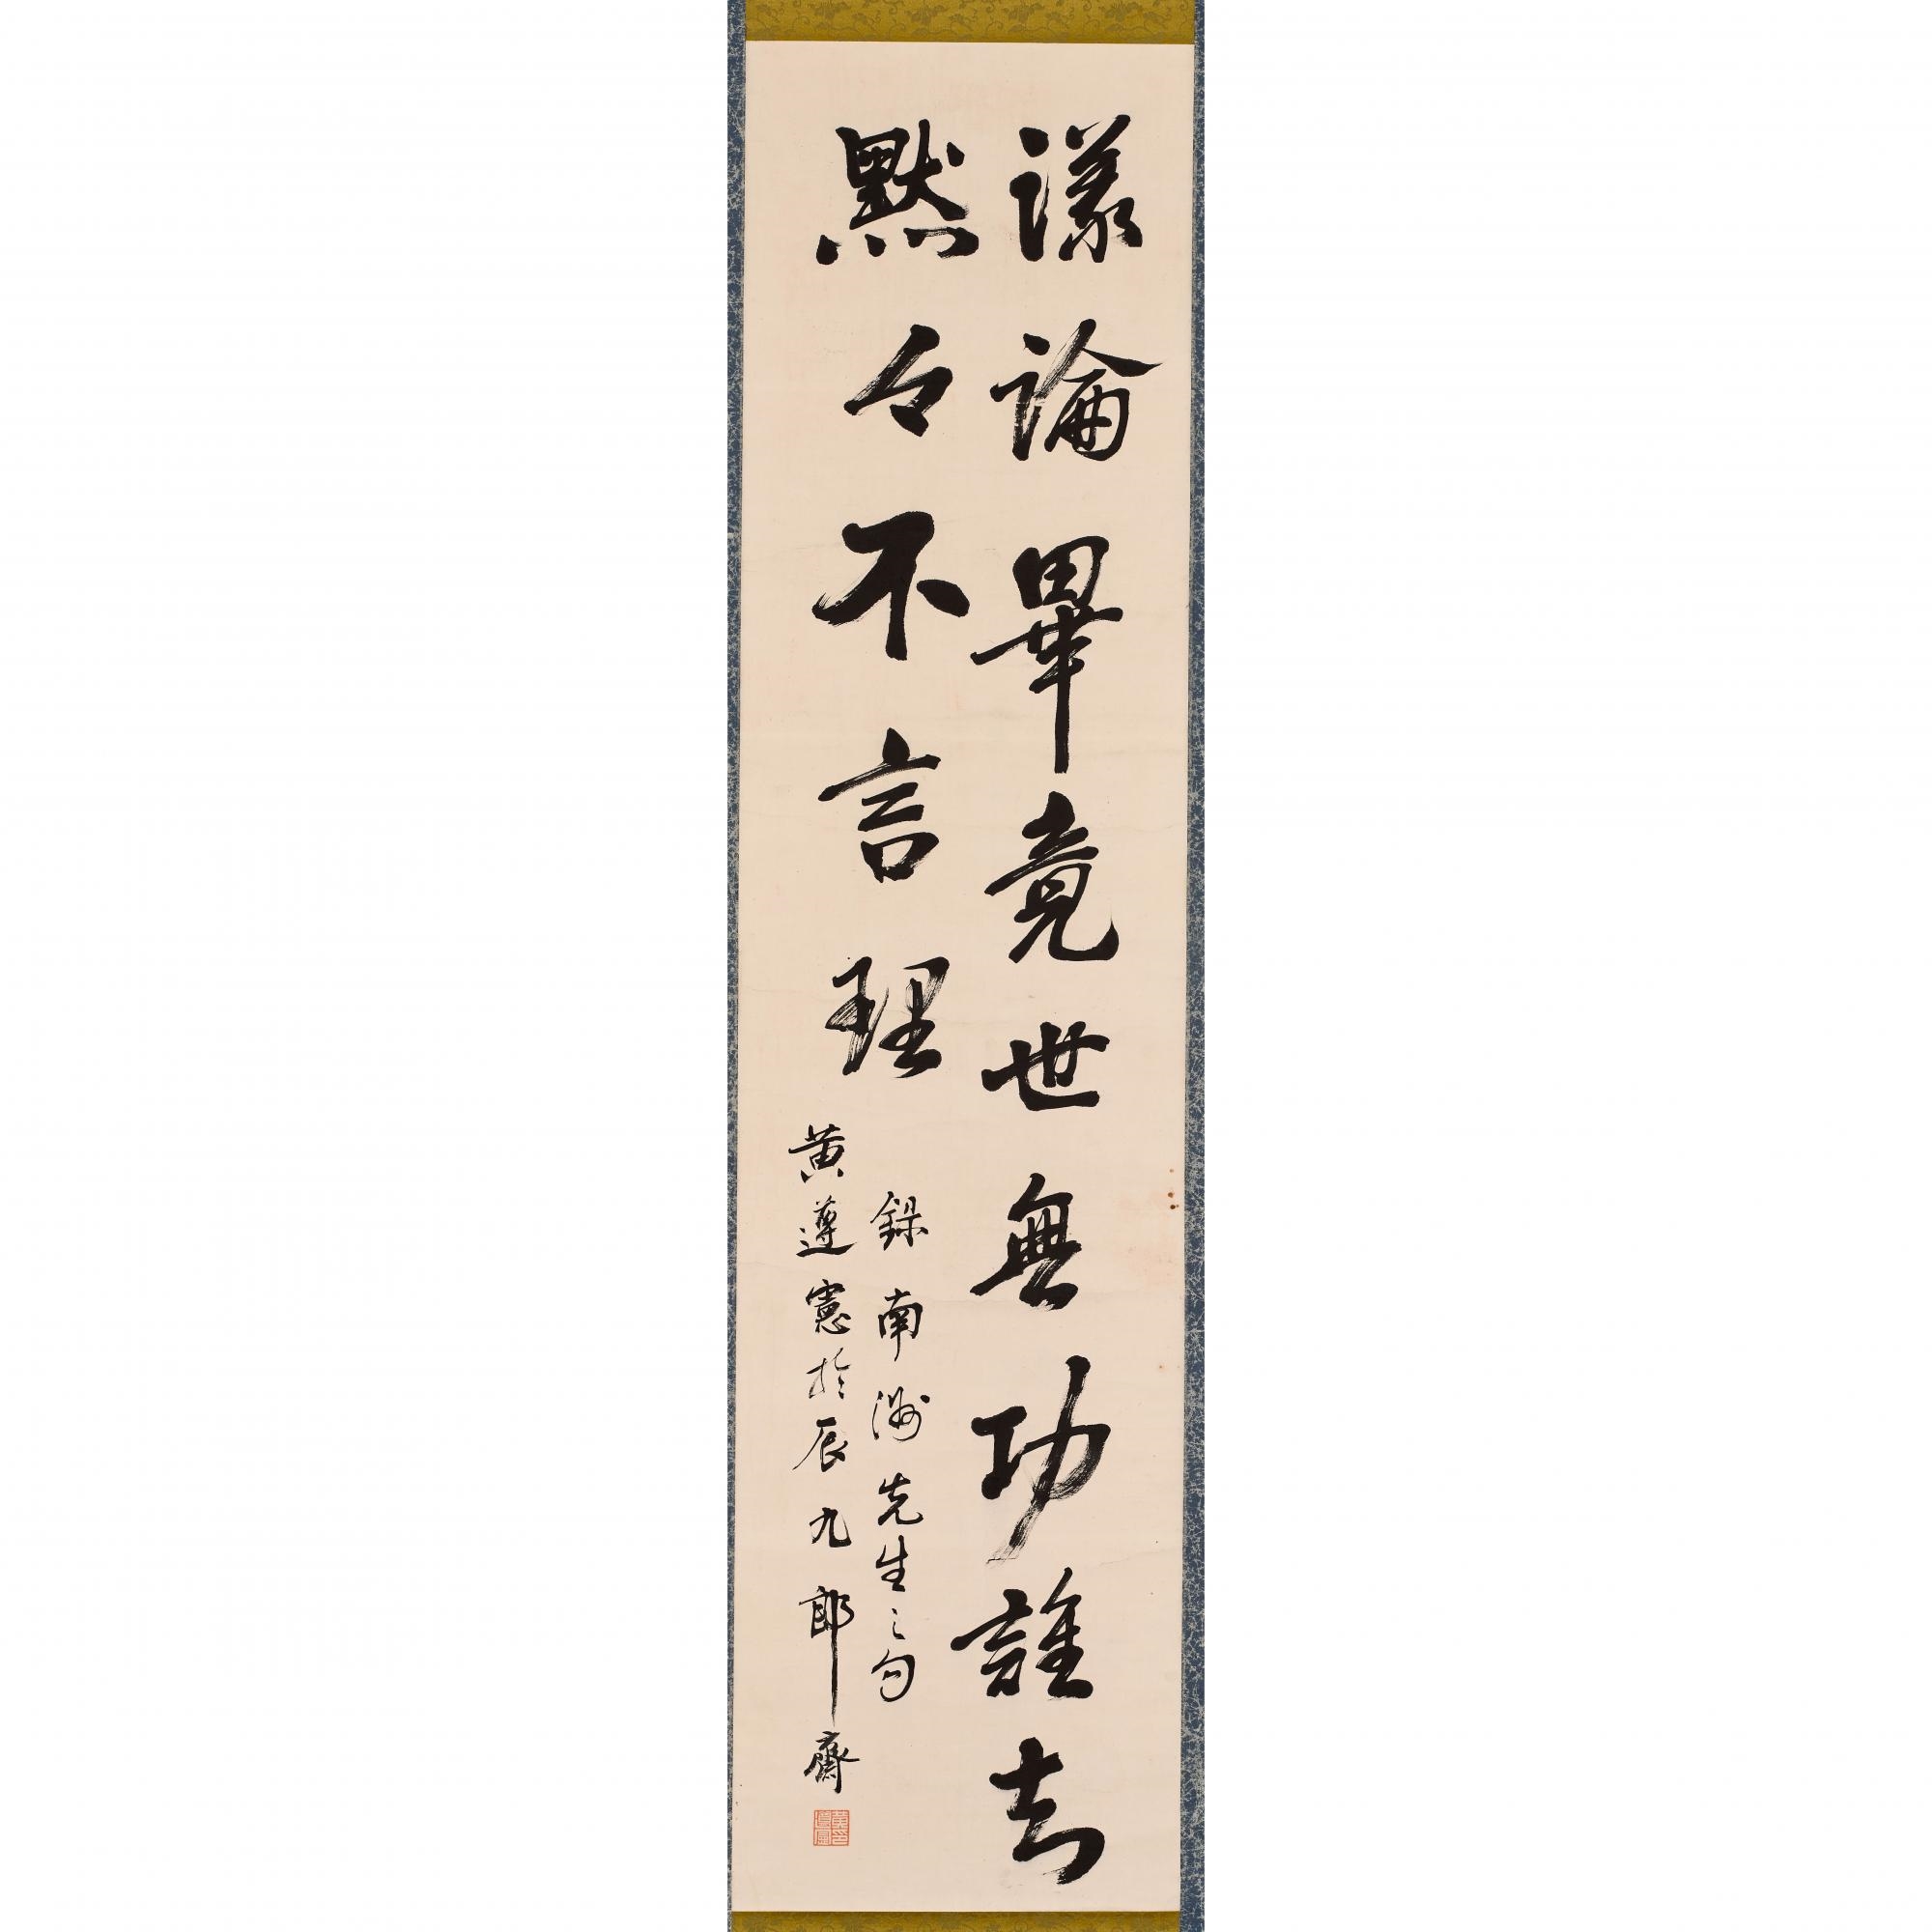 議論畢竟世無功誰知
默々不言理
錄南洲先生之句
黃遵憲於辰九郎齋